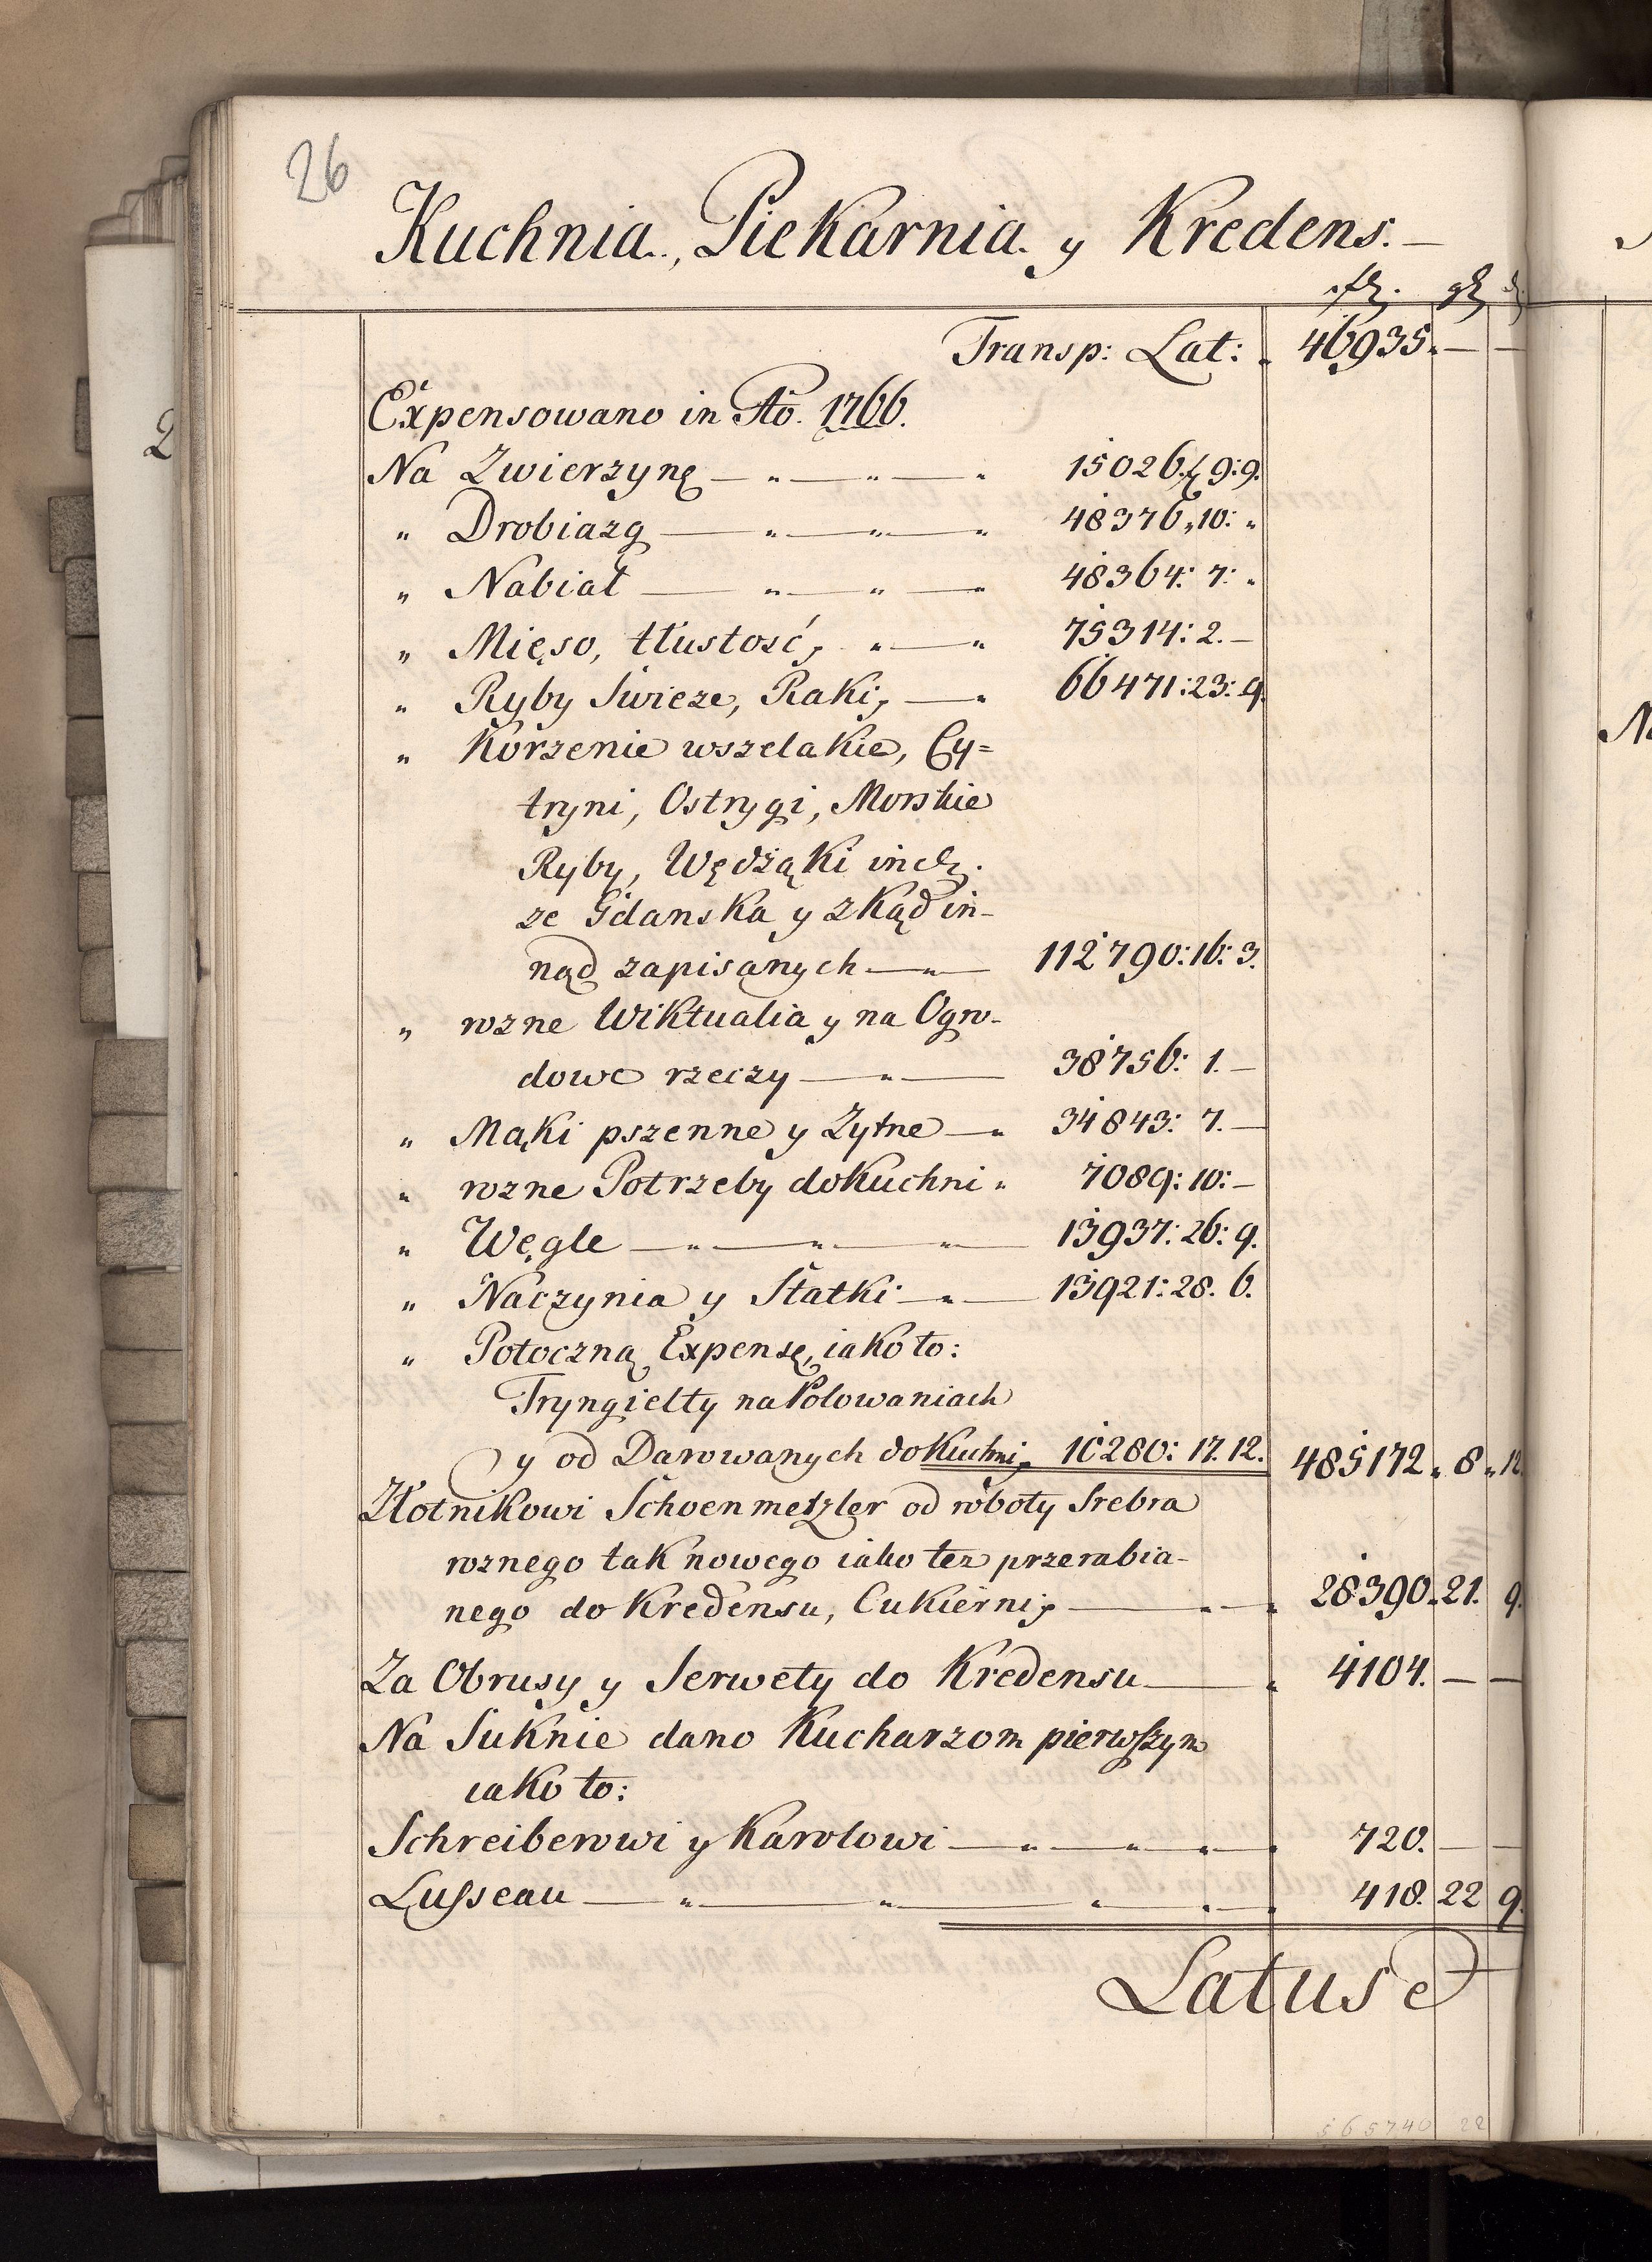 26
Kuchnia, Piekarnia y Kredens.
Transp: Lat: 46935. — —
Expensowano in Ao. 1766.
Na Zwierzynę — „ — „ — „ 15026. 9: 9.
„ Drobiazg — „ — „ — „ 48376 „ 10: „
„ Nabiał — „ — „ — „ 48364: 7: „
„ Mięso, tłustość, „ — „ 75314: 2. —
„ Ryby Swieze, Raki, — „ 66471: 23: 9.
„ Korzenie wszelakie, Cy=
tryni, Ostrygi, Morskie
Ryby, Wędząki
ze Gdanska y zkąd in-
nąd zapisanych — „ — 112790: 16: 3.
„ rozne Wiktualia y na Ogro-
dowe rzeczy — „ — 38756: 1. —
„ Mąki pszenne y Zytne — „ 34843: 7. —
„ rozne Potrzeby do Kuchni „ 7089: 10: —
„ Węgle — „ — „ — „ — 13937: 26: 9.
„ Naczynia y Statki — „ — 13921: 28. 6.
„ Potoczną Expensę, iako to:
Tryngielty na Polowaniach
y od Darowanych do Kuchni, 10280: 17. 12. 485172 „ 8 „ 12.
Złotnikowi Schoenmetzler od roboty Srebra
roznego tak nowego iako tez przerabia-
nego do Kredensu, Cukierni, — „ — „ 28390. 21. 9.
Za Obrusy y Serwety do Kredensu — „ 4104. — —
Na Suknie dano Kucharzom pierwszym
iako to:
Schreiberowi y Karolowi — „ — „ — „ — „ 720. — —
Lusseau — „ — „ — „ — „ — „ 418. 22 9.
Latus
565740 22